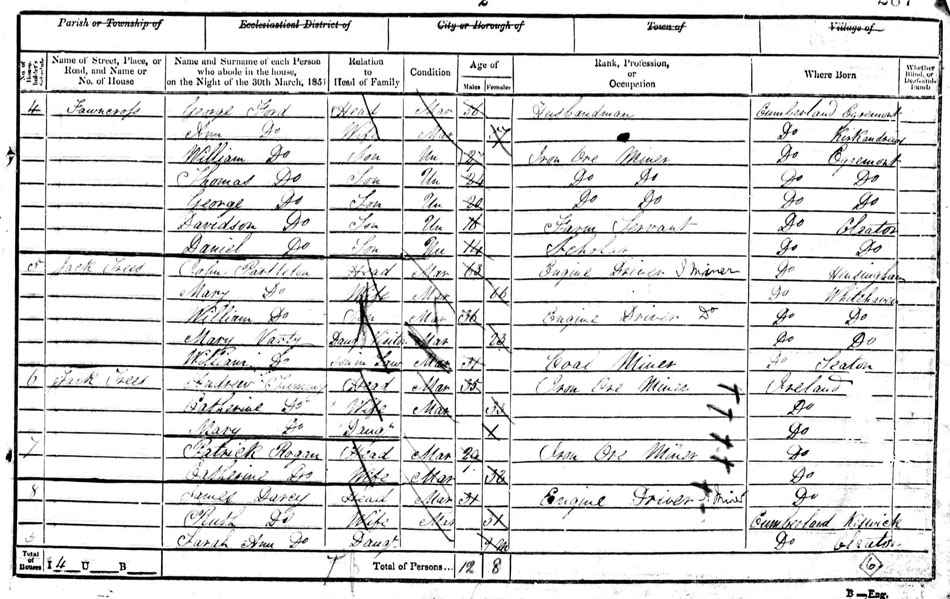 2
267
Parish or Township of Ecclesiastical District of City or Borough of Town of Village of
No. of House- holder's Schedule Name of Street, Place, or Road, and Name or No. of House Name and Surname of each Person who abode in the house, on the Night of the 30th March, 1851 Relation to Head of Family Condition Age of Males Females Rank, Profession, or Occupation Where Born Whether Blind, or Deaf-and-Dumb
4 George Ford Head Mar Husbandman Cumberland Egremont
Ann Do Wife Mar 57 Do
William Do Son Un 27 Iron Ore Miner Do Egremont
Thomas Do Son Un 24 Do Do Do Do
George Do Son Un 20 Do Do Do Do
Davidson Do Son Un Farm Servant Do Cleator
Daniel Do Son Un 14 Scholar Do Do
5 Jack Trees John Head Mar 63 Engine Driver I Miner Do Hensingham
Mary Do Wife Mar Do Whitehaven
William Do Son Mar 36 Engine Driver Do Do Do
Mary Varty Daug Visitor Mar 23 Do Do
William Do Son in Law Mar Coal Miner Do Seaton
6 Jack Trees Andrew Head Mar 35 Iron Ore Miner Ireland
Catherine Do Wife Mar 33 Do
Mary Do Daugr Do
7 Patrick Rogan Head Mar Iron Ore Miner Do
Catherine Do Wife Mar Do
8 James Darcey Head Mar Engine Driver I. Miner Do
Ruth Do Wife Mar 31 Cumberland Keswick
Sarah Ann Do Daugr Do Cleator
Total of Houses I 4 U B Total of Persons... 12 8
B—Eng.